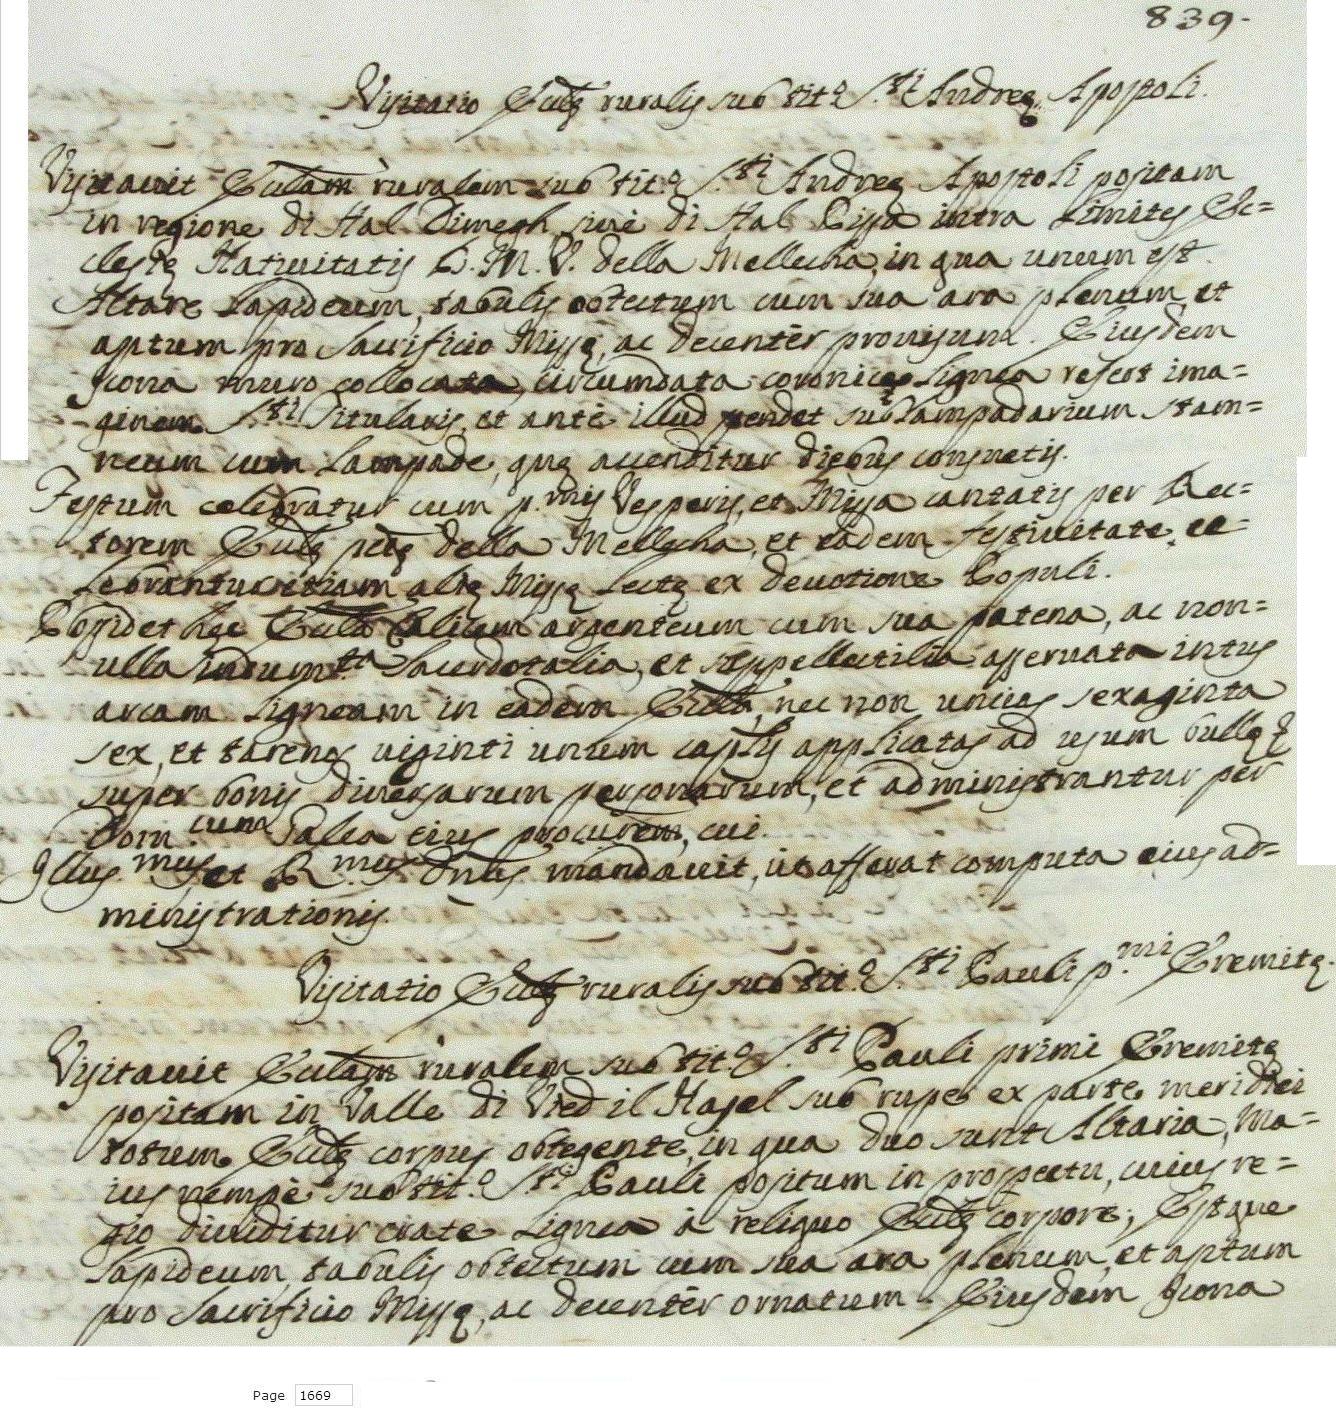 839.
Visitatio Ecclę ruralis sub tit.º S.ti Andreę Apostoli.
Visitavit Ecclam ruralem sub tit.º S.ti Andreę Apostoli positam
in regione di Hal Dimegh, sivè di Hal Pissa intra limites Ec=
clesię Nativitatis B. M. V. della Mellecha, in qua unum est
Altare lapideum, tabulis obtectum cum sua ara plenum, et
aptum pro Sacrificio Missę, ac decentèr provisum. Eiusdem
Icona muro collocata, circumdata coronice lignea refert ima=
ginem S.ti Titularis, et antè illud pendet sub lampadarium stam=
neum cum Lampade, quę accenditur diebus consuetis.
Festum celebratur cum p.mis Vesperis, et Missa cantatis per Rec=
torem Ecclę della Mellecha, et eadem festivitate ce=
lebrantur etiam alię Missę lectę ex devotione Populi.
Possidet hęc Eccla Calicem argenteum cum sua patena, ac non=
nulla indum.ta Sacerdotalia, et suppellectilia asservata intus
arcam ligneam in eadem Eccla, nec non uncias sexaginta
sex, et tarenos viginti unum capṡlis applicatas ad usum bullę
super bonis diversarum personarum, et administrantur per
Dom.cum Galea eius procurem, cui.
Illus.mus, et R.mus Dnus mandavit, ut afferat computa eius ad=
ministrationis.
Visitatio Ecclę ruralis sub tit.º S.ti Pauli p.mi Eremitę.
Visitavit Ecclam ruralem sub tit.º S.ti Pauli primi Eremitę
positam in Valle di Vied il Hasel sub rupe ex parte meridiei
totum Ecclę corpus obtegente, in qua duo sunt Altaria, Ma=
ius nempè sub tit.º S.ti Pauli positum in prospectu, cuius re=
gio dividitur crate lignea à reliquo Ecclę corpore; Estque
lapideum, tabulis obtectum cum sua ara plenum, et aptum
pro Sacrificio Missę, ac decentèr ornatum. Eiusdem Icona
Page 1669